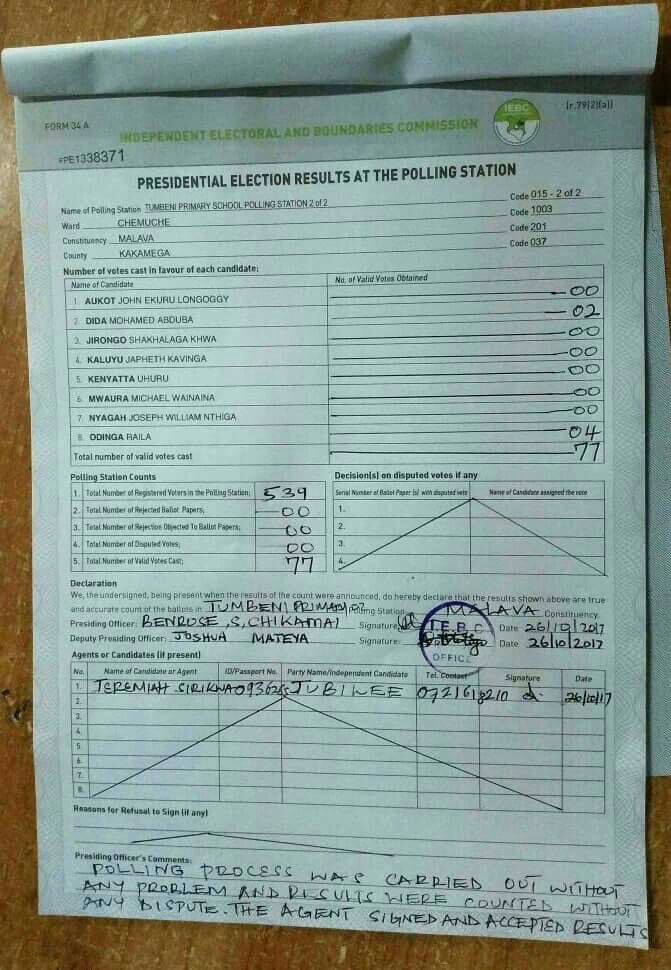 FORM 34 A
(r.79(2)(a))
IEBC
INDEPENDENT ELECTORAL AND BOUNDARIES COMMISSION
#PE1338371
PRESIDENTIAL ELECTION RESULTS AT THE POLLING STATION
Name of Polling Station TUMBENI PRIMARY SCHOOL POLLING STATION 2 of 2 Code 015 - 2 of 2
Ward CHEMUCHE Code 1003
Constituency MALAVA Code 201
County KAKAMEGA Code 037
Number of votes cast in favour of each candidate:
Name of Candidate No. of Valid Votes Obtained
1. AUKOT JOHN EKURU LONGOGGY 00
2. DIDA MOHAMED ABDUBA 02
3. JIRONGO SHAKHALAGA KHWA 00
4. KALUYU JAPHETH KAVINGA 00
5. KENYATTA UHURU 00
6. MWAURA MICHAEL WAINAINA 00
7. NYAGAH JOSEPH WILLIAM NTHIGA 00
8. ODINGA RAILA 04
Total number of valid votes cast 77
Polling Station Counts Decision(s) on disputed votes if any
1. Total Number of Registered Voters in the Polling Station; 539 Serial Number of Ballot Paper (s) with disputed vote Name of Candidate assigned the vote
2. Total Number of Rejected Ballot Papers; 00 1.
3. Total Number of Rejection Objected To Ballot Papers; 00 2.
4. Total Number of Disputed Votes; 00 3.
5. Total Number of Valid Votes Cast; 77 4.
Declaration
We, the undersigned, being present when the results of the count were announced, do hereby declare that the results shown above are true
and accurate count of the ballots in TUMBENI PRIMARY Polling Station MALAVA Constituency.
Presiding Officer: BENROSE .S. CHIKAMAI Signature: I.E.B.C Date 26/10/2017
Deputy Presiding Officer: JOSHUA MATEYA Signature: Date 26/10/2017
OFFICE
Agents or Candidates (if present)
No. Name of Candidate or Agent ID/Passport No. Party Name/Independent Candidate Tel. Contact Signature Date
1. JEREMIAH JUBILEE 26/10/17
2.
3.
4.
5.
6.
7.
8.
Reasons for Refusal to Sign (if any)
Presiding Officer's Comments:
POLLING PROCESS WAS CARRIED OUT WITHOUT
ANY PROBLEM AND RESULTS WERE COUNTED WITHOUT
ANY DISPUTE. THE AGENT SIGNED AND ACCEPTED RESULTS